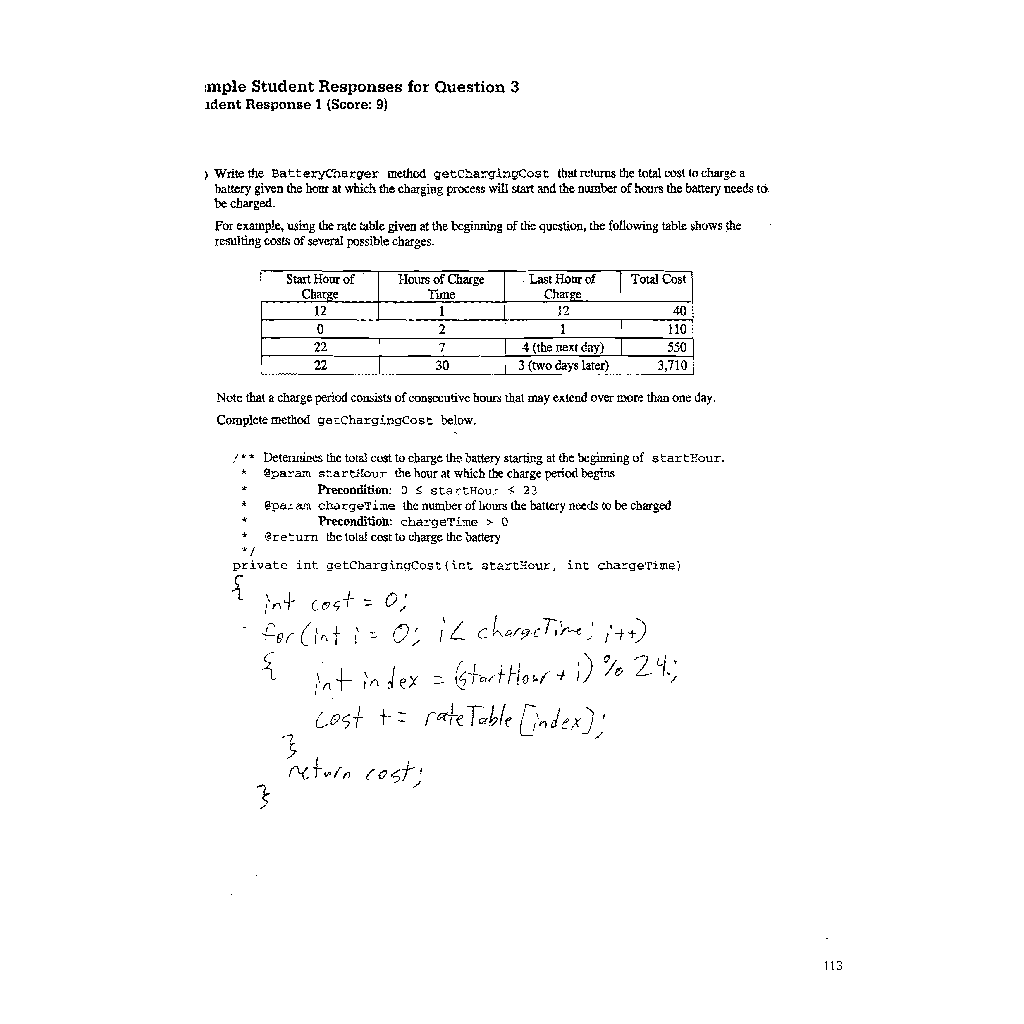 mple Student Responses for Question 3
ident Response 1 (Score: 9)
) Write the BatteryCharger method getChargingCost that returns the total cost to charge a
battery given the hour at which the charging process will start and the number of hours the battery needs to
be charged.
For example, using the rate table given at the beginning of the question, the following table shows the
resulting costs of several possible charges.
Start Hour of Charge | Hours of Charge Time | Last Hour of Charge | Total Cost
12 | 1 | 12 | 40
0 | 2 | 1 | 110
22 | 7 | 4 (the next day) | 550
22 | 30 | 3 (two days later) | 3,710
Note that a charge period consists of consecutive hours that may extend over more than one day.
Complete method getChargingCost below.
/** Determines the total cost to charge the battery starting at the beginning of startHour.
* @param startHour the hour at which the charge period begins
* Precondition: 0 ≤ startHour ≤ 23
* @param chargeTime the number of hours the battery needs to be charged
* Precondition: chargeTime > 0
* @return the total cost to charge the battery
*/
private int getChargingCost(int startHour, int chargeTime)
{
int cost = 0;
for(int i = 0; i < chargeTime; i++)
{
int index = (startHour + i) % 24;
cost += rateTable[index];
}
return cost;
}
113